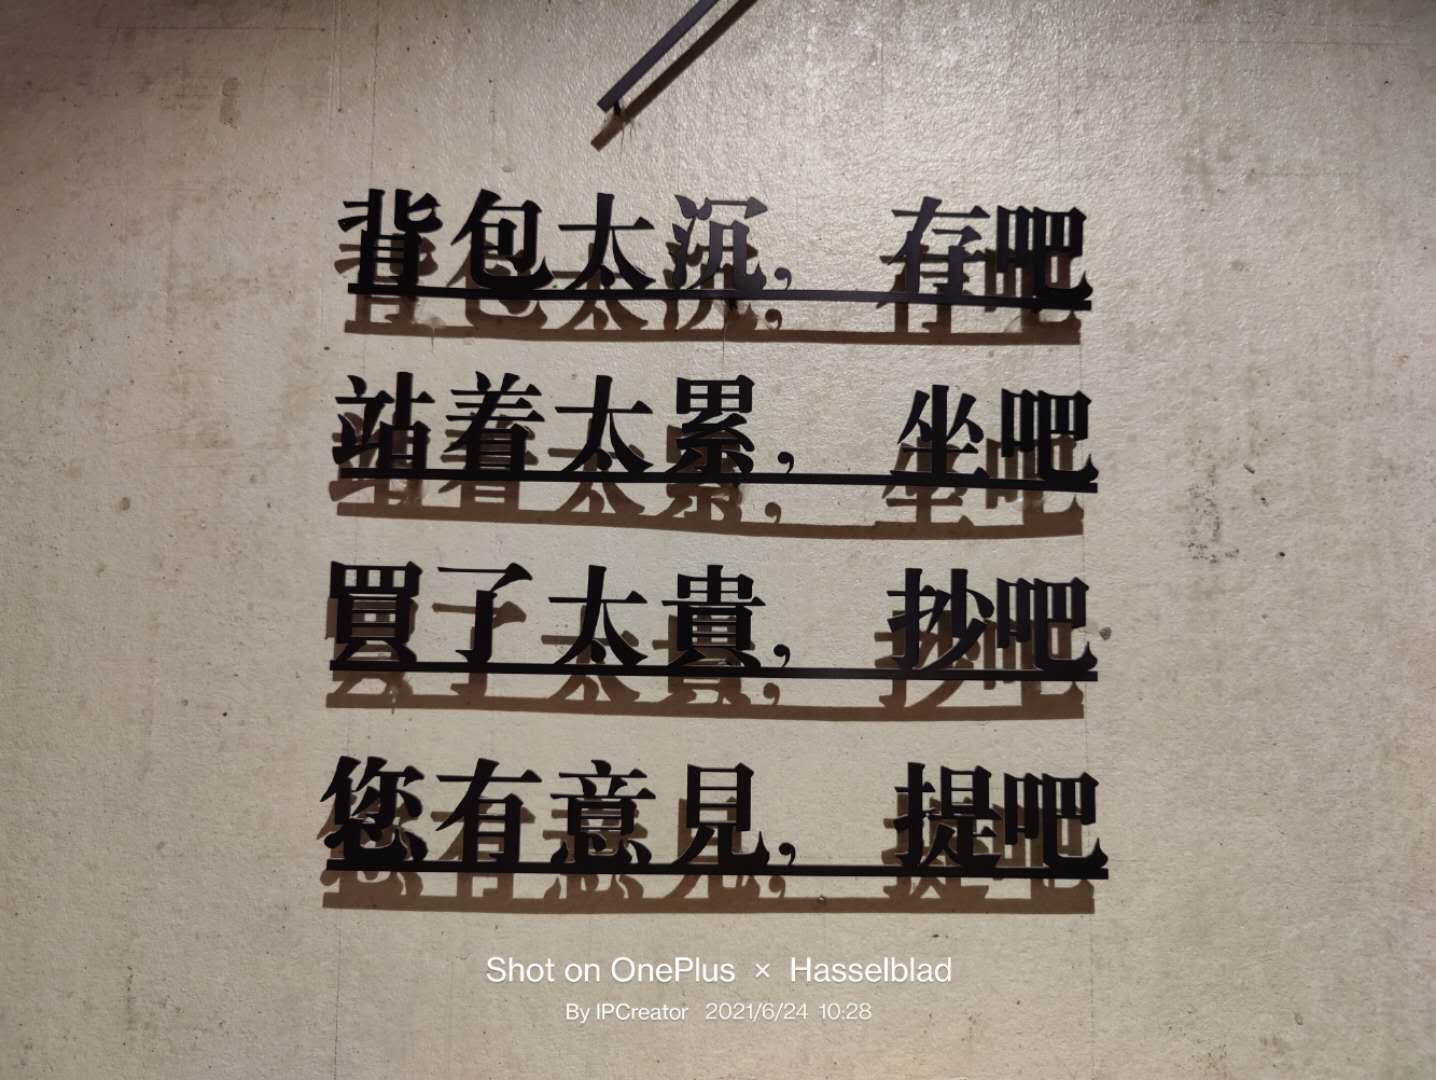 背包太沉， 存吧
站着太累， 坐吧
買了太貴， 抄吧
您有意見， 提吧
Shot on OnePlus × Hasselblad
By IPCreator 2021/6/24 10:28